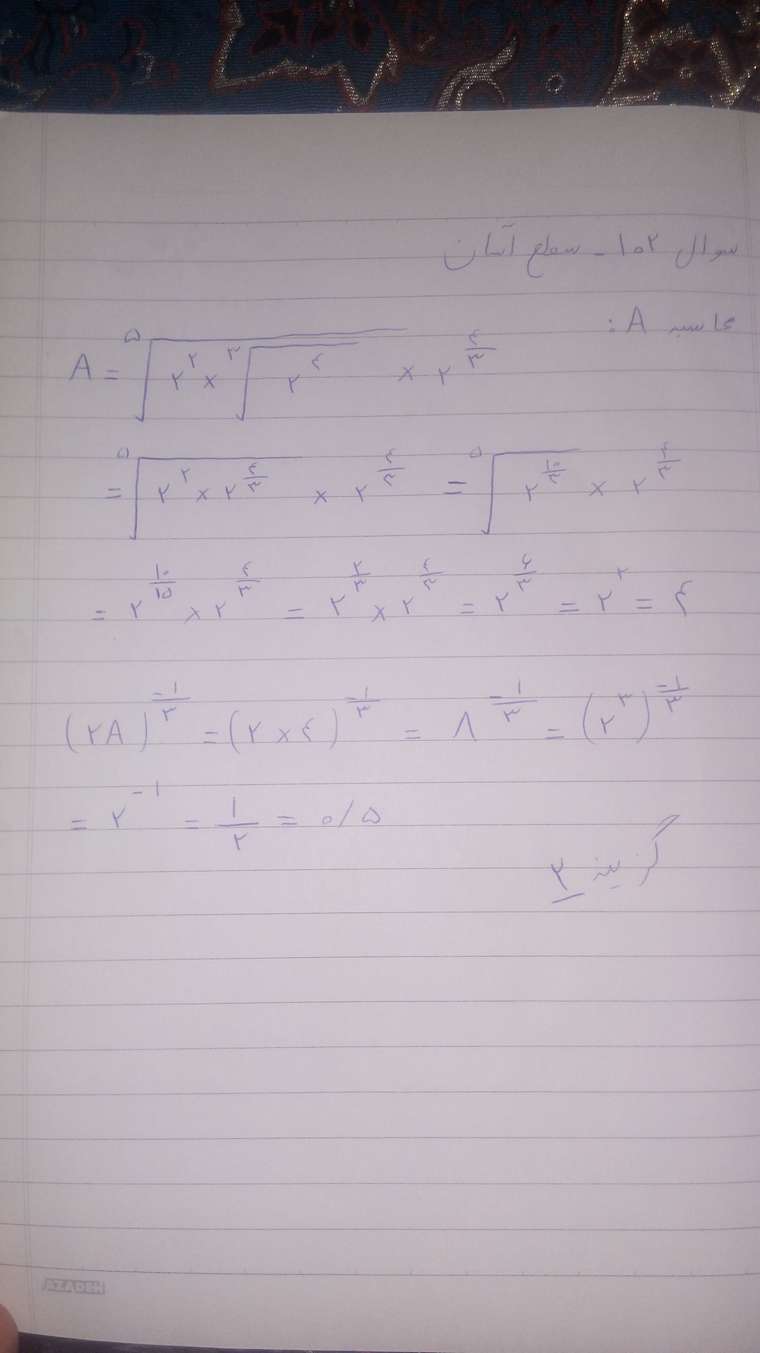 سوال ۱۰۲ - سطح آسان
محاسبه A:
A = ⁵√(۲^۲ × ³√(۲^۴)) × ۲^(۴/۳)
= ⁵√(۲^۲ × ۲^(۴/۳)) × ۲^(۴/۳) = ⁵√(۲^(۱۰/۳)) × ۲^(۴/۳)
= ۲^(۱۰/۱۵) × ۲^(۴/۳) = ۲^(۲/۳) × ۲^(۴/۳) = ۲^(۶/۳) = ۲^۲ = ۴
(۲A)^(-۱/۳) = (۲ × ۴)^(-۱/۳) = ۸^(-۱/۳) = (۲^۳)^(-۱/۳)
= ۲^(-۱) = ۱/۲ = ۰/۵
گزینه ۲
AZADEH